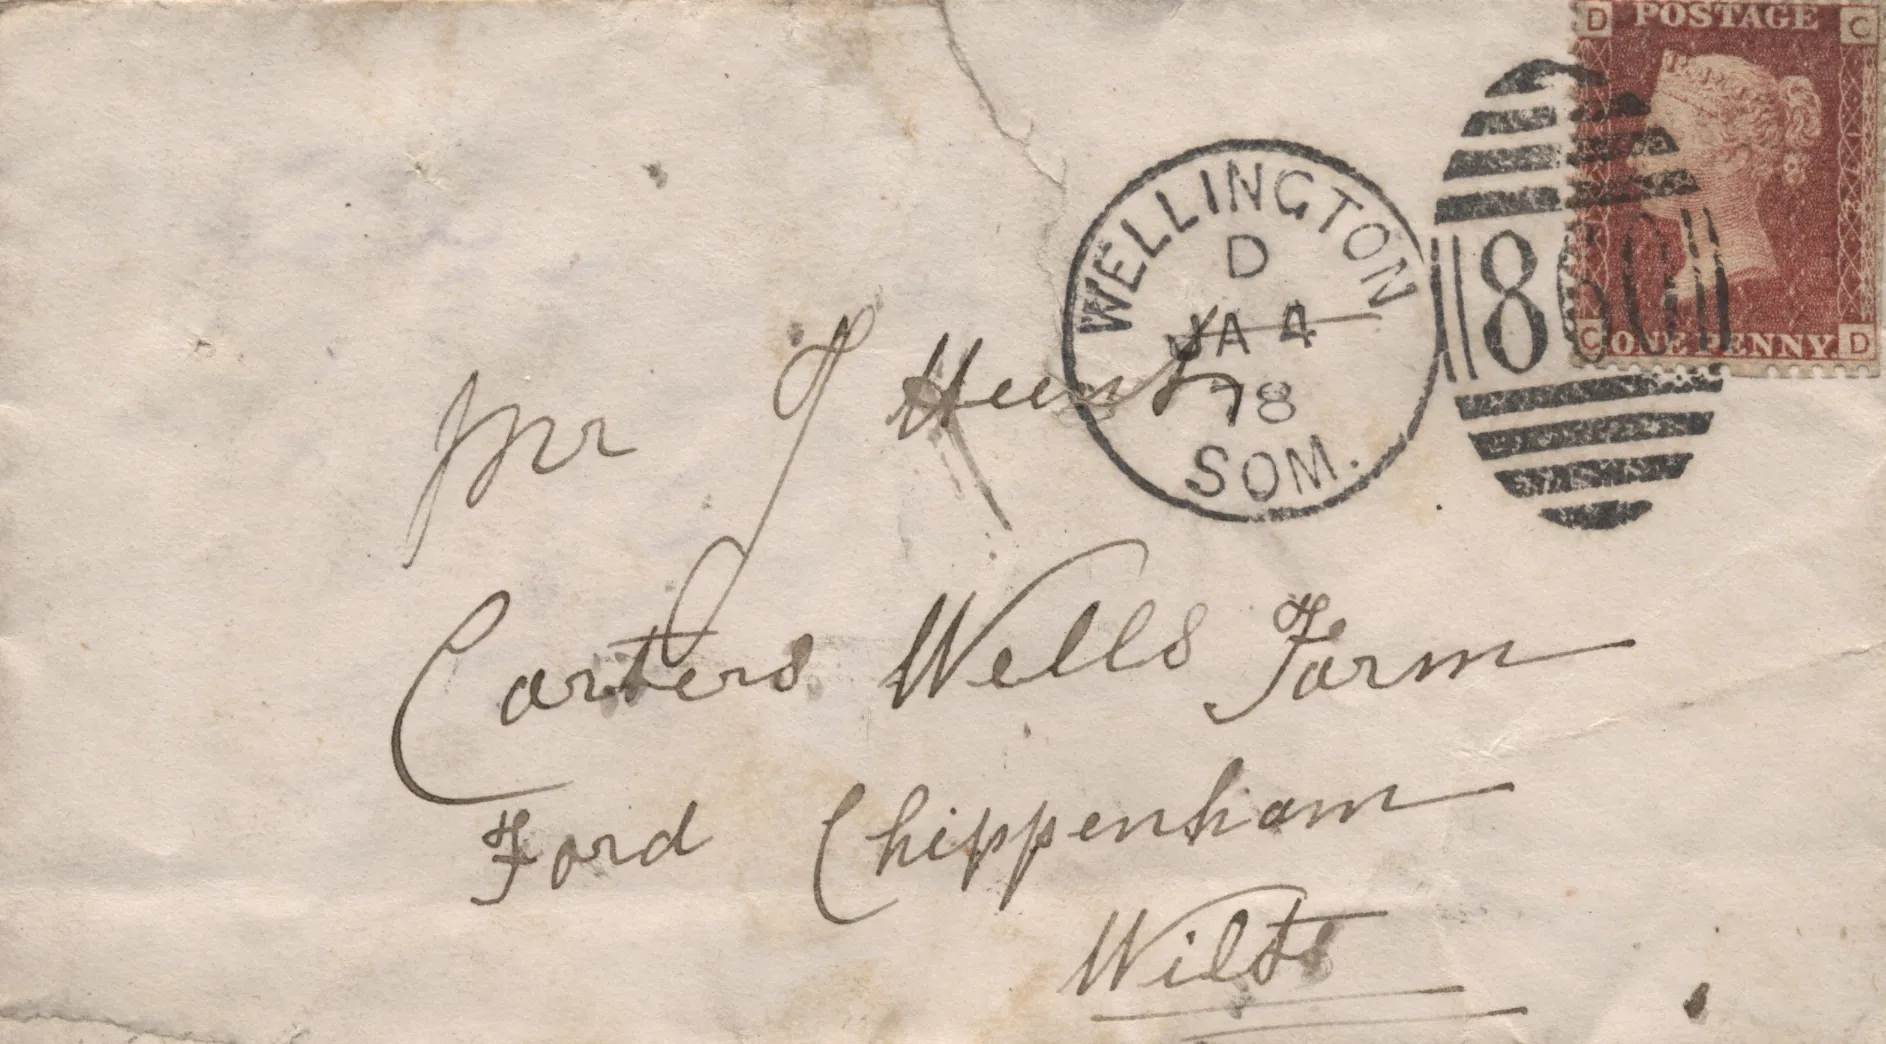 D POSTAGE C
WELLINGTON
D
JA 4
78
SOM.
860
C ONE PENNY. D
Mr J Hunt
Carters Wells Farm
Ford Chippenham
Wilts